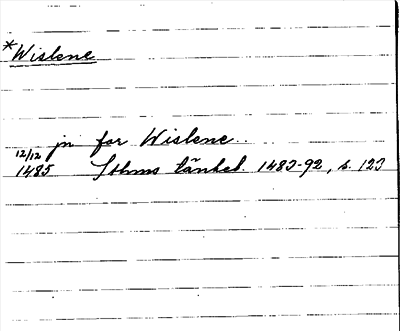 *Wislene
jn for Wislene..
12/12
1485 Sthms tänkeb. 1483-92, s. 123